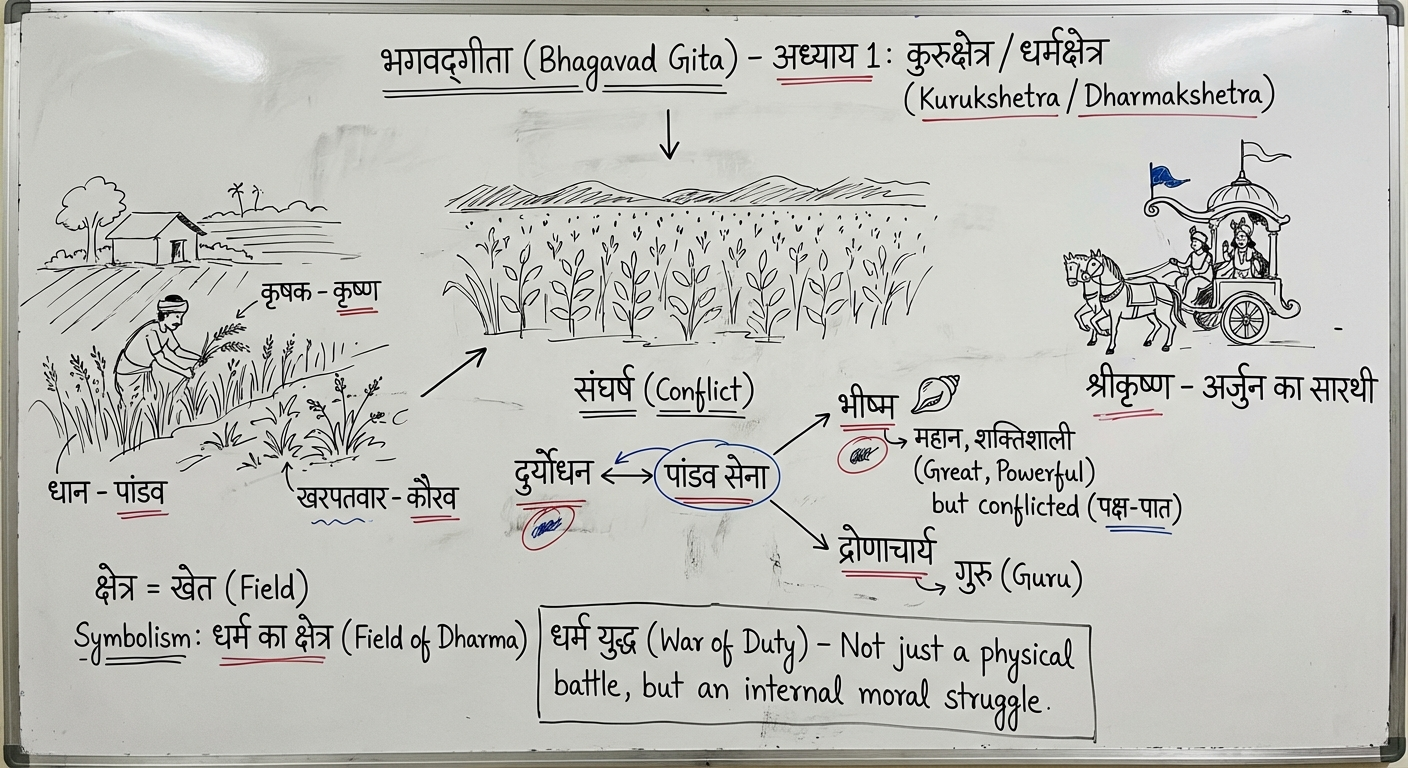 भगवद्गीता (Bhagavad Gita) – अध्याय 1: कुरुक्षेत्र / धर्मक्षेत्र
(Kurukshetra / Dharmakshetra)
कृषक – कृष्ण
धान – पांडव
खरपतवार – कौरव
श्रीकृष्ण – अर्जुन का सारथी
संघर्ष (Conflict)
दुर्योधन
पांडव सेना
भीष्म
महान, शक्तिशाली
(Great, Powerful)
but conflicted (पक्ष-पात)
द्रोणाचार्य
गुरु (Guru)
क्षेत्र = खेत (Field)
Symbolism: धर्म का क्षेत्र (Field of Dharma)
धर्म युद्ध (War of Duty) – Not just a physical
battle, but an internal moral struggle.